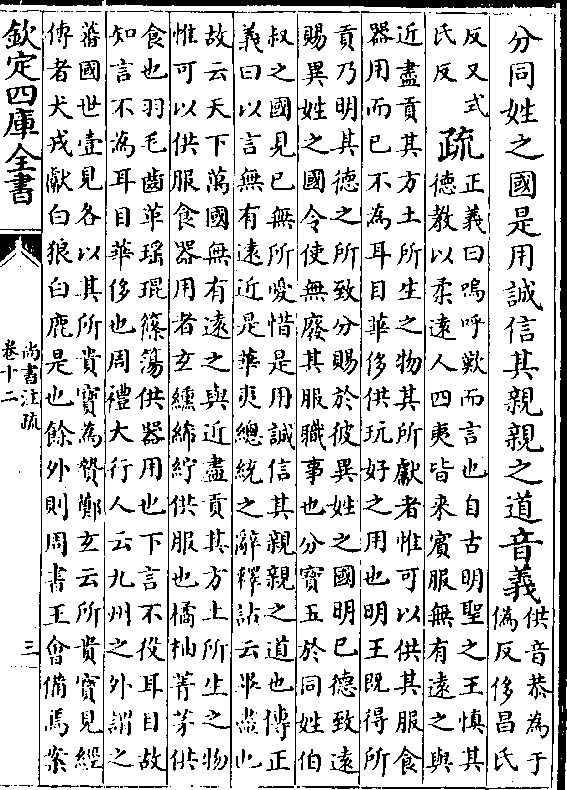 分同姓之國是用誠信其親親之道音義
供音恭為于
偽反侈昌氏
反又式
氏反
疏
正義曰嗚呼歎而言也自古明聖之王慎其
德教以柔遠人四夷皆來賓服無有遠之與
近盡貢其方土所生之物其所獻者惟可以供其服食
器用而已不為耳目華侈供玩好之用也明王既得所
貢乃明其德之所致分賜於彼異姓之國明已德致遠
賜異姓之國令使無廢其服職事也分寶玉於同姓伯
叔之國見已無所愛惜是用誠信其親親之道也傳正
義曰以言無有遠近是華夷總統之辭釋詁云畢盡也
故云天下萬國無有遠之與近盡貢其方土所生之物
惟可以供服食器用者玄纁絺紵供服也橘柚菁茅供
食也羽毛齒革瑤琨篠簜供器用也下言不役耳目故
知言不為耳目華侈也周禮大行人云九州之外謂之
蕃國世壹見各以其所貴寶為贄鄭玄云所貴寶見經
傳者犬戎獻白狼白鹿是也餘外則周書王會備焉案
欽定四庫全書
尚書注疏
卷十二
三